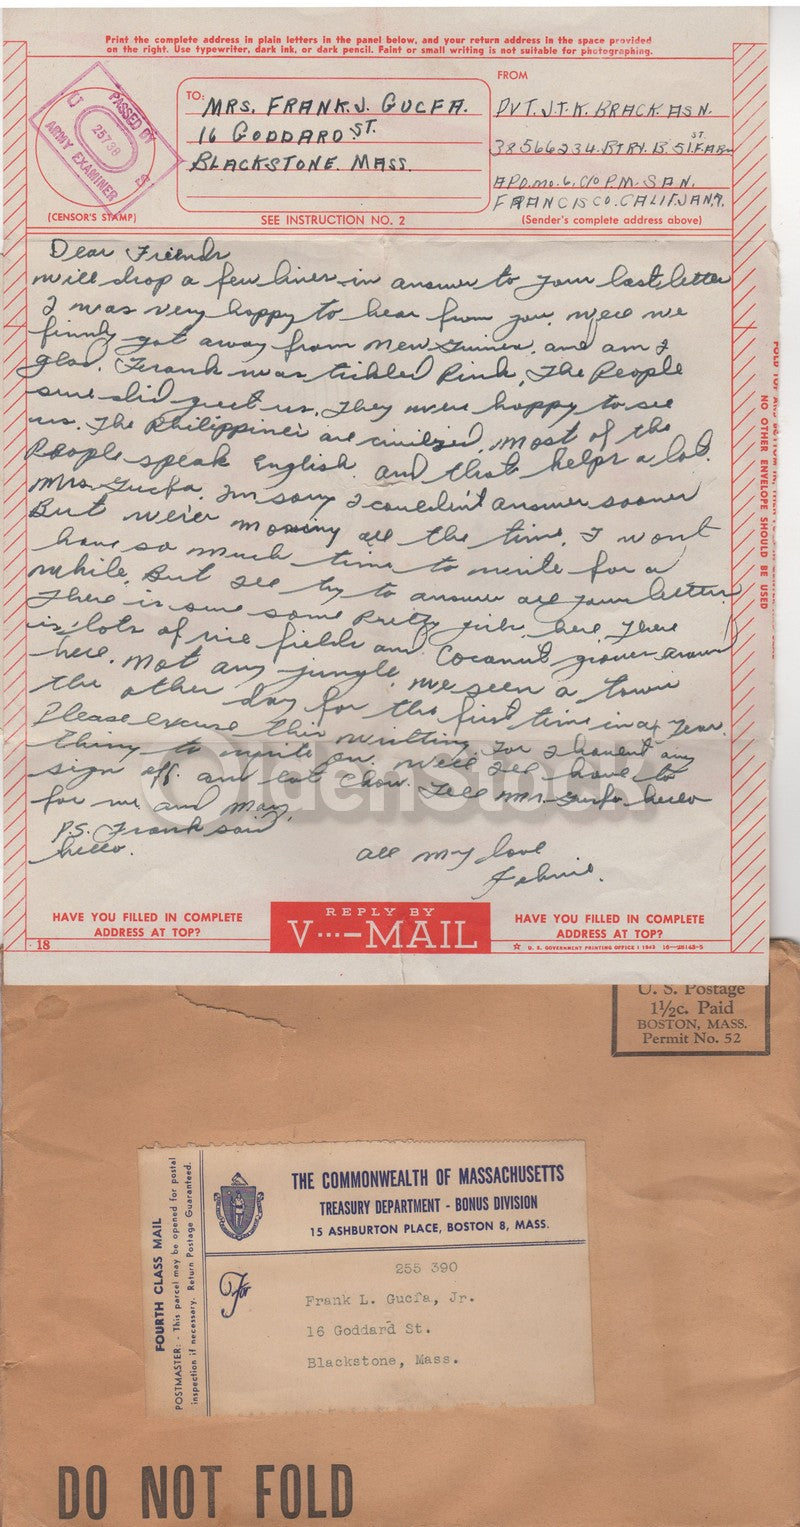 Print the complete address in plain letters in the panel below, and your return address in the space provided
on the right. Use typewriter, dark ink, or dark pencil. Faint or small writing is not suitable for photographing.
PASSED BY
U S
25738
ARMY EXAMINER
(CENSOR'S STAMP)
TO:
MRS. FRANK. J. GUCFA.
16 GODDARD ST.
BLACKSTONE. MASS.
SEE INSTRUCTION NO. 2
FROM
PVT. J.T.K. BRACK. ASN.
38566234. BTRY. B. 51 ST. F.A.BN
APO. no. 6. C/O P.M. SAN.
FRANCISCO. CALIF. JAN.
(Sender's complete address above)
Dear Friends
will drop a few lines in answer to your last letter
I was very happy to hear from you. Well we
finnly got away from New Guinea. and am I
glad. Frank was tickled Pink. The People
sure did greet us. They were happy to see
us. The Philippines are civilized. Most of the
People speak English. and that helps a lot.
Mrs. Gucfa. I'm sorry I couldn't answer sooner
But we're moving all the time. I wont
have so much time to write for a
while. But I'll try to answer all your letters
There is sure some Pretty girls here. There
is lots of rice fields and Coconut groves around
here. Not any jungle. We seen a town
the other day for the first time in a year.
Please excuse this writting. For I havent any
thing to write on. Well I'll have to
sign off. and eat chow. Tell Mr. Gucfa hello
for me and Mary.
P.S. Frank said
hello.
All my love
HAVE YOU FILLED IN COMPLETE
ADDRESS AT TOP?
REPLY BY
V···—MAIL
HAVE YOU FILLED IN COMPLETE
ADDRESS AT TOP?
18
U. S. GOVERNMENT PRINTING OFFICE : 1943 16—28143-5
NO OTHER ENVELOPE SHOULD BE USED
OldenStock
U. S. Postage
1½c. Paid
BOSTON, MASS.
Permit No. 52
FOURTH CLASS MAIL
POSTMASTER: - This parcel may be opened for postal
inspection if necessary. Return Postage Guaranteed.
THE COMMONWEALTH OF MASSACHUSETTS
TREASURY DEPARTMENT - BONUS DIVISION
15 ASHBURTON PLACE, BOSTON 8, MASS.
For
255 390
Frank L. Gucfa, Jr.
16 Goddard St.
Blackstone, Mass.
DO NOT FOLD